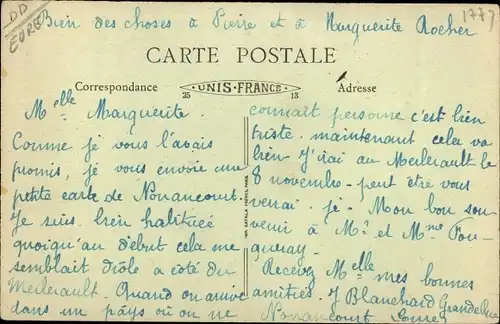 DD
EURE
1777
Bien des choses à Pierre et à Marguerite Rocher
CARTE POSTALE
Correspondance
25 UNIS-FRANCE 13
Adresse
Melle Marguerite.
Comme je vous l'avais
promis, je vous envoie une
petite carte de Nonancourt
Je suis bien habituée
quoiqu'au début cela me
semblait drôle a côté du
Meilerault. Quand on arrive
dans un pays où on ne
connait personne c'est bien
triste. maintenant cela va
bien. J'irai au Meilerault le
8 novembre peut être vous
verrai-je. Mon bon sou-
venir à Mr et Mme Fou-
queray.
Recevez Melle mes bonnes
amitiés. J Blanchard Grande Rue
Nonancourt Eure